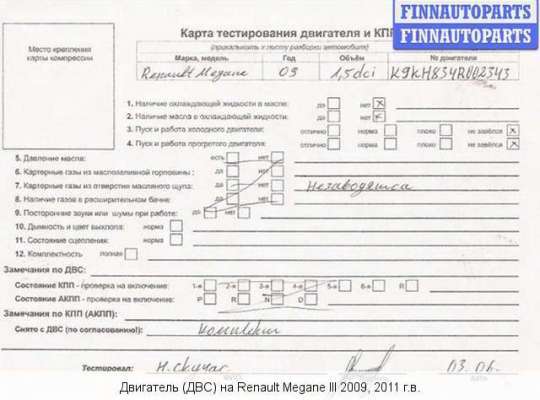 FINNAUTOPARTS
FINNAUTOPARTS
Карта тестирования двигателя и КПП
(прикалывать к листу разборки автомобиля)
Место крепления карты компрессии
Марка, модель Год Объём № двигателя
Renault Megane 09 1,5dci K9KH834R002343
1. Наличие охлаждающей жидкости в масле: да нет x
2. Наличие масла в охлаждающей жидкости: да нет x
3. Пуск и работа холодного двигателя: отлично норма плохо не завёлся x
4. Пуск и работа прогретого двигателя: отлично норма плохо не завёлся x
5. Давление масла: есть нет
6. Картерные газы из маслозаливной горловины: да нет
7. Картерные газы из отверстия масляного щупа: да нет Незаводяшка
8. Наличие газов в расширительном бачке: да нет
9. Посторонние звуки или шумы при работе: да нет
10. Дымность и цвет выхлопа: норма
11. Состояние сцепления: норма
12. Комплектность полная
Замечания по ДВС:
Состояние КПП - проверка на включение: 1-я 2-я 3-я 4-я 5-я 6-я R
Состояние АКПП - проверка на включение: P R N D
Замечания по КПП (АКПП):
Снято с ДВС (по согласованию!):
Тестировал:
Двигатель (ДВС) на Renault Megane III 2009, 2011 г.в.